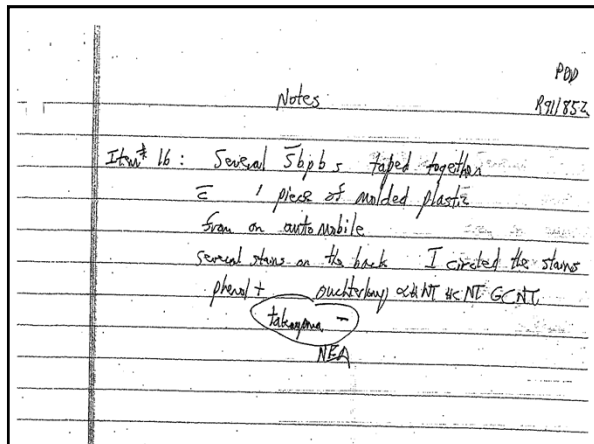 PDD
Notes
R91/852
Item# 16 : Several Sbpbs taped together
c̄ 1 piece of molded plastic
from an automobile
several stains on the back I circled the stains
phenol + ouchterlony αH NT αC NT GCNT
takayama –
NEA